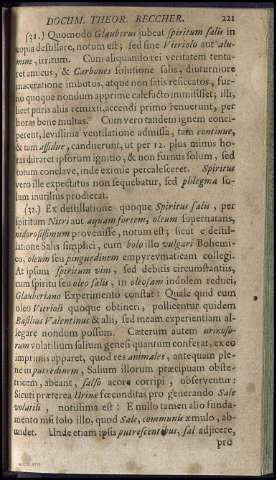 DOCUM. THEOR. BECCHER. 221
(31.) Quomodo Glauberus jubeat spiritum salis in
copia destillare, notum est; sed sine Vitriolo aut alu-
mine, irritum. Cum aliquando rei veritatem tenta-
ret amicus, & Carbones solutione salis, diuturniore
maceratione imbutos, atque non satis resiccatos, fur-
no quoque nondum apprime calefacto immisisset; illi,
licet puris aliis remixti, accendi primo renuerunt, per
horas bene multas. Cum vero tandem ignem conci-
perent, levissima ventilatione admissa, tam continue,
& tam assidue, canduerunt, ut per 12. plus minus ho-
ras duraret ipsorum ignitio, & non furnus solum, sed
totum conclave, inde eximie percalesceret. Spiritus
vero ille expectatus non sequebatur, sed phlegma so-
lum inutilius prodierat.
(32.) Ex destillatione quoque Spiritus salis, per
spiritum Nitri aut aquam fortem, oleum supernatans,
odorosissimum provenisse, notum est; sicut e destil-
latione Salis simplici, cum bolo illo vulgari Bohemi-
co, oleum seu pinguedinem empyreumaticam collegi.
At ipsum spiritum vini, sed debitis circumstantiis,
cum spiritu seu oleo salis, in oleosam indolem reduci,
Glauberiano Experimento constat: Quale quid cum
oleo Vitrioli quoque obtineri, pollicentur quidem
Basilius Valentinus & alii, sed meam experientiam al-
legare nondum possum. Cæterum autem urinoso-
rum volatilium salium genesi quantum conferat, ex eo
imprimis apparet, quod res animales, antequam ple-
ne in putredinem, Salium illorum præcipuam obste-
tricem, abeant, salso acore corripi, observentur:
Sicuti præterea Urinæ fœcunditas pro generando Sale
volatili, notissima est: E nullo tamen alio funda-
mento nisi solo illo, quod Sale, communis æmulo, ab-
undet. Unde etiam ipsis putrescentibus, sal adjicere,
pro